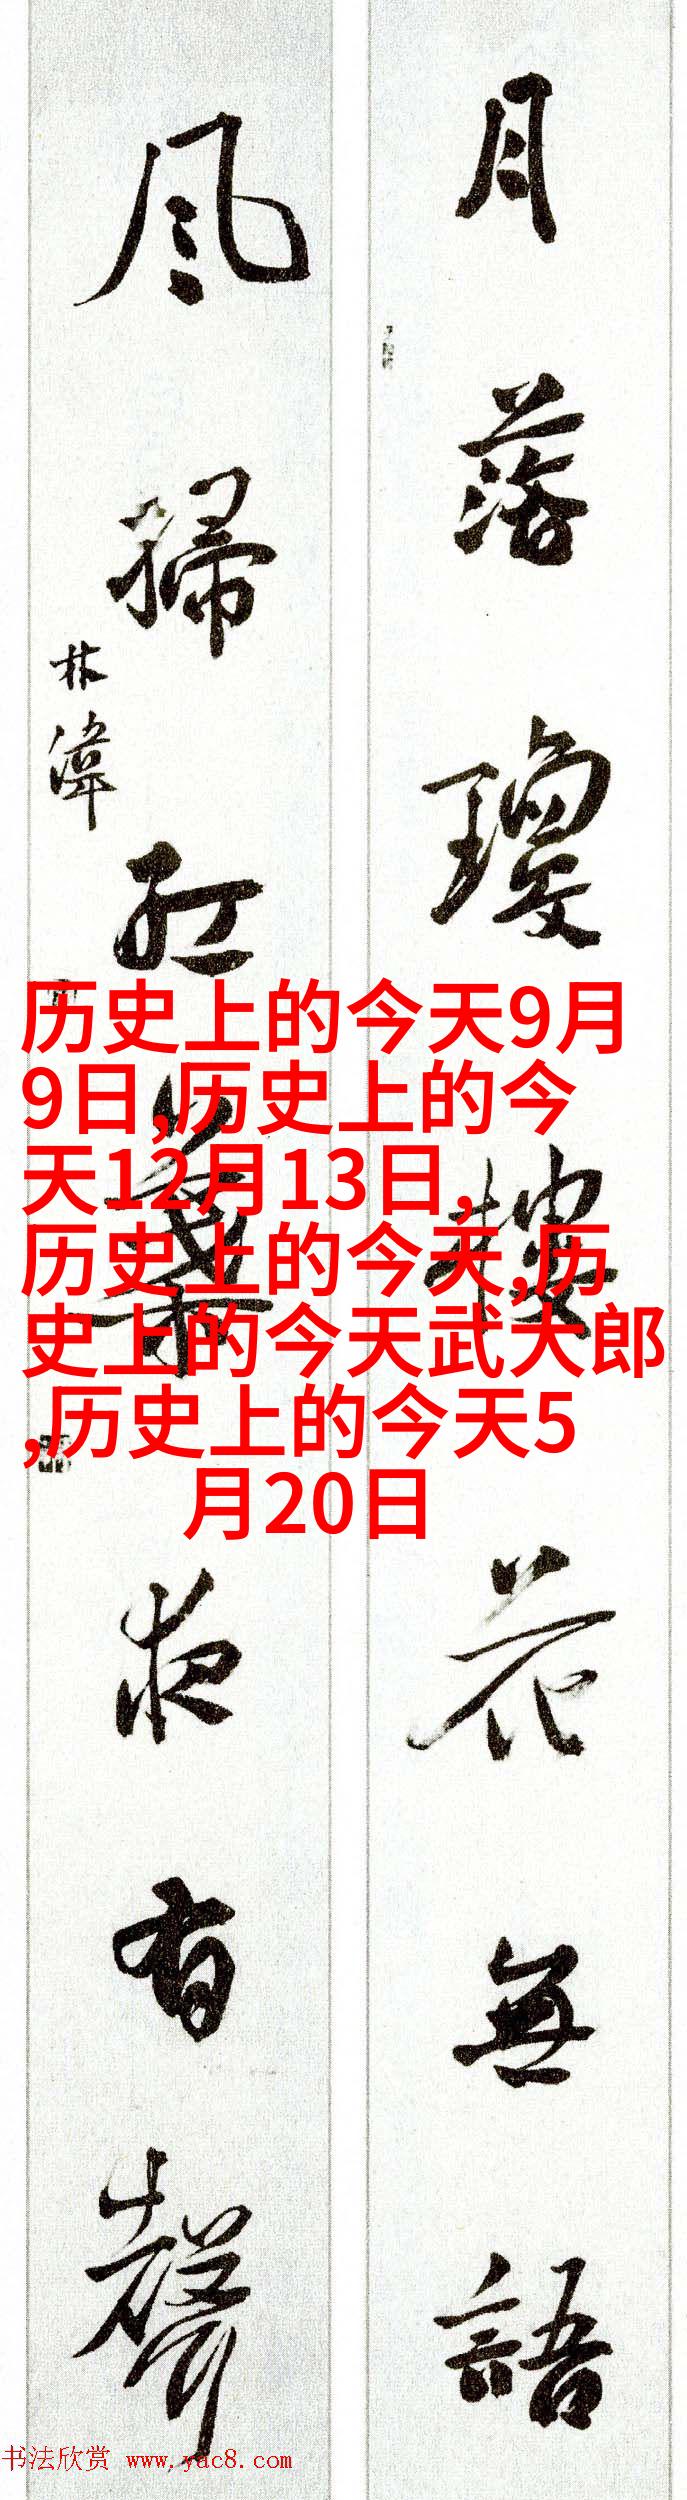 月落瓊樓花無語
風掃紅葉夜有聲
林偉
历史上的今天9月
9日,历史上的今
天12月13日,
历史上的今天,历
史上的今天武大郎
,历史上的今天5
月20日
书法欣赏 www.yac8.com